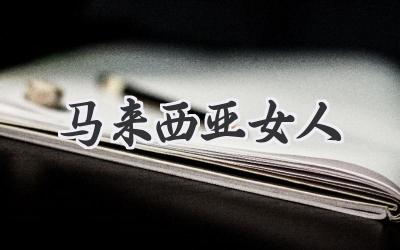 马来西亚女人